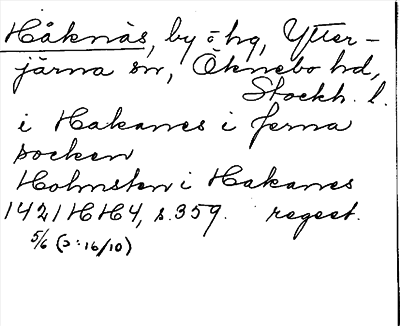 Håknäs, by o hg, Ytter-
järna sn, Öknebo hd,
Stockh. l.
i Hakanes i Jerna
socken
Holmsten i Hakanes
1421 HH4, s.359. regest.
5/6 (ɔ: 16/10)